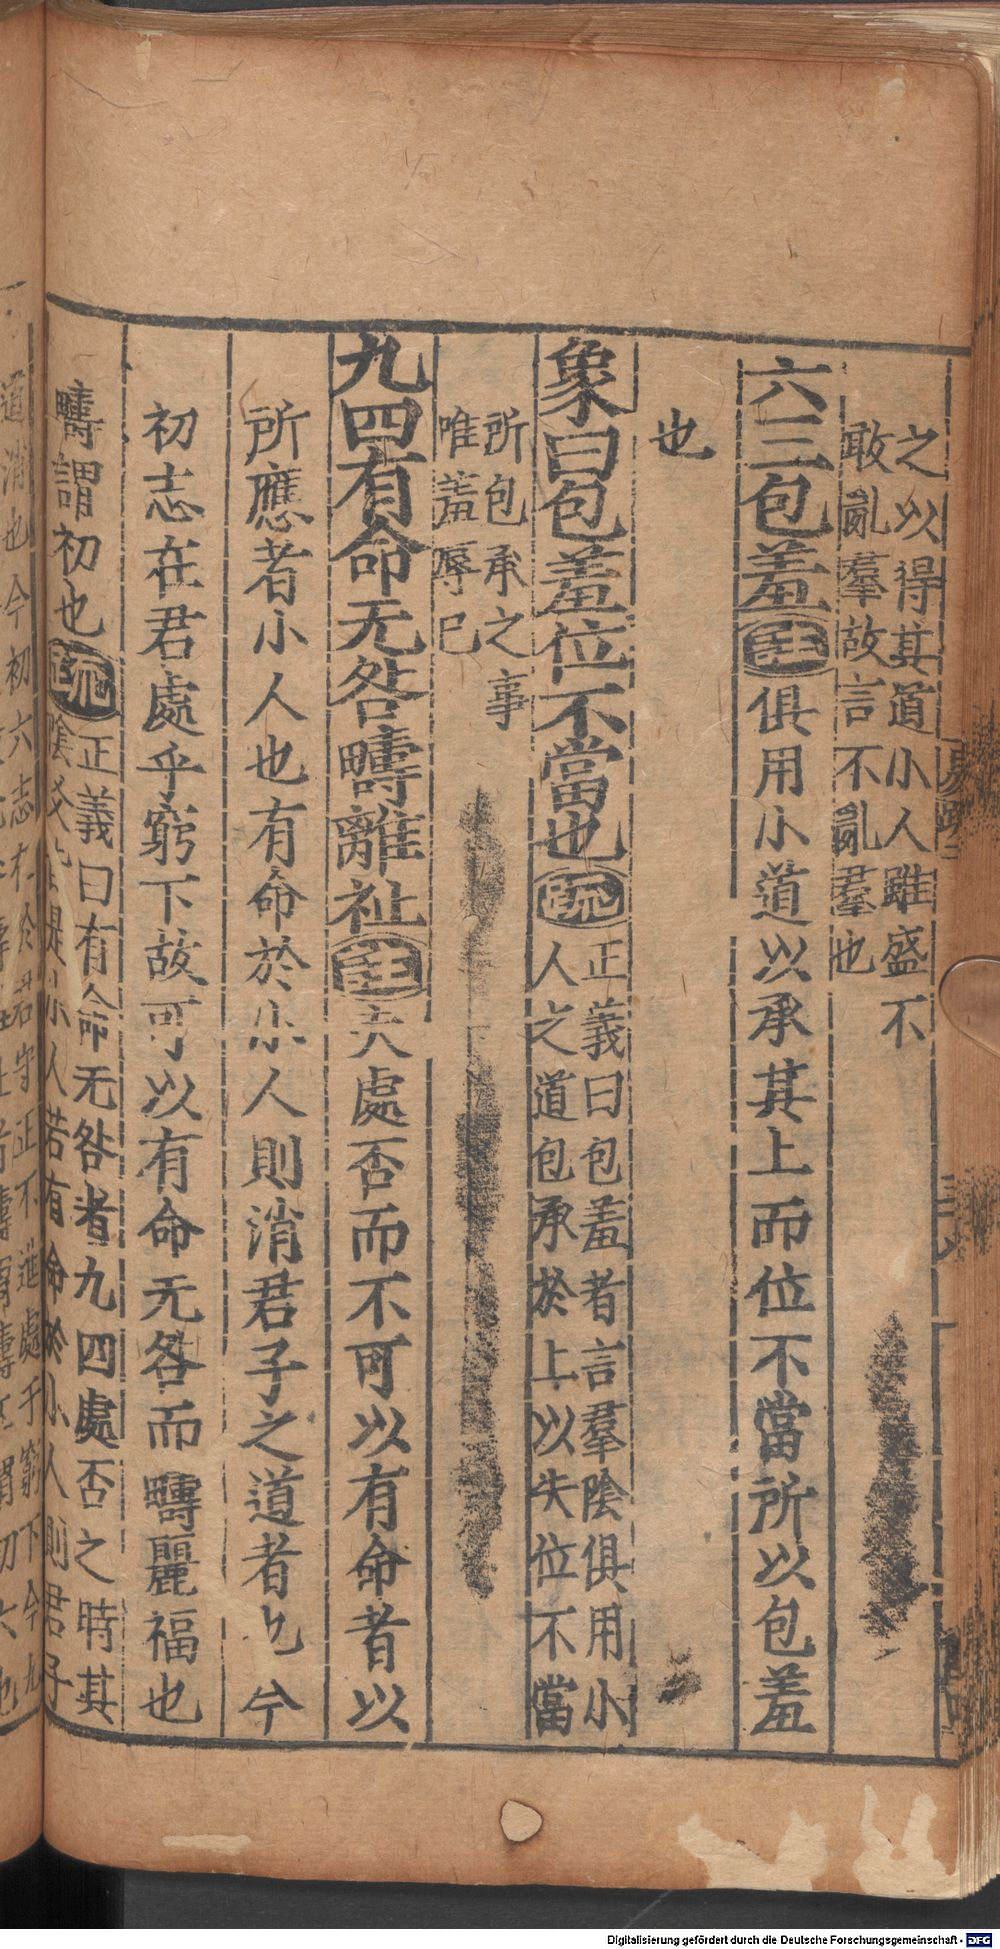 之以得其道小人雖盛不
敢亂羣故言不亂羣也
六三包羞註俱用小道以承其上而位不當所以包羞
也
象曰包羞位不當也疏正義曰包羞者言羣陰俱用小
人之道包承於上以失位不當
所包承之事
唯羞辱已
九四有命无咎疇離祉註夫處否而不可以有命者以
所應者小人也有命於小人則消君子之道者也今
初志在君處乎窮下故可以有命无咎而疇麗福也
疇謂初也疏正義曰有命无咎者九四處否之時其
陰爻 小人若有命於小人則君子
道消也今初六志在於君守正不進處于窮下今九
Digitalisierung gefördert durch die Deutsche Forschungsgemeinschaft - DFG